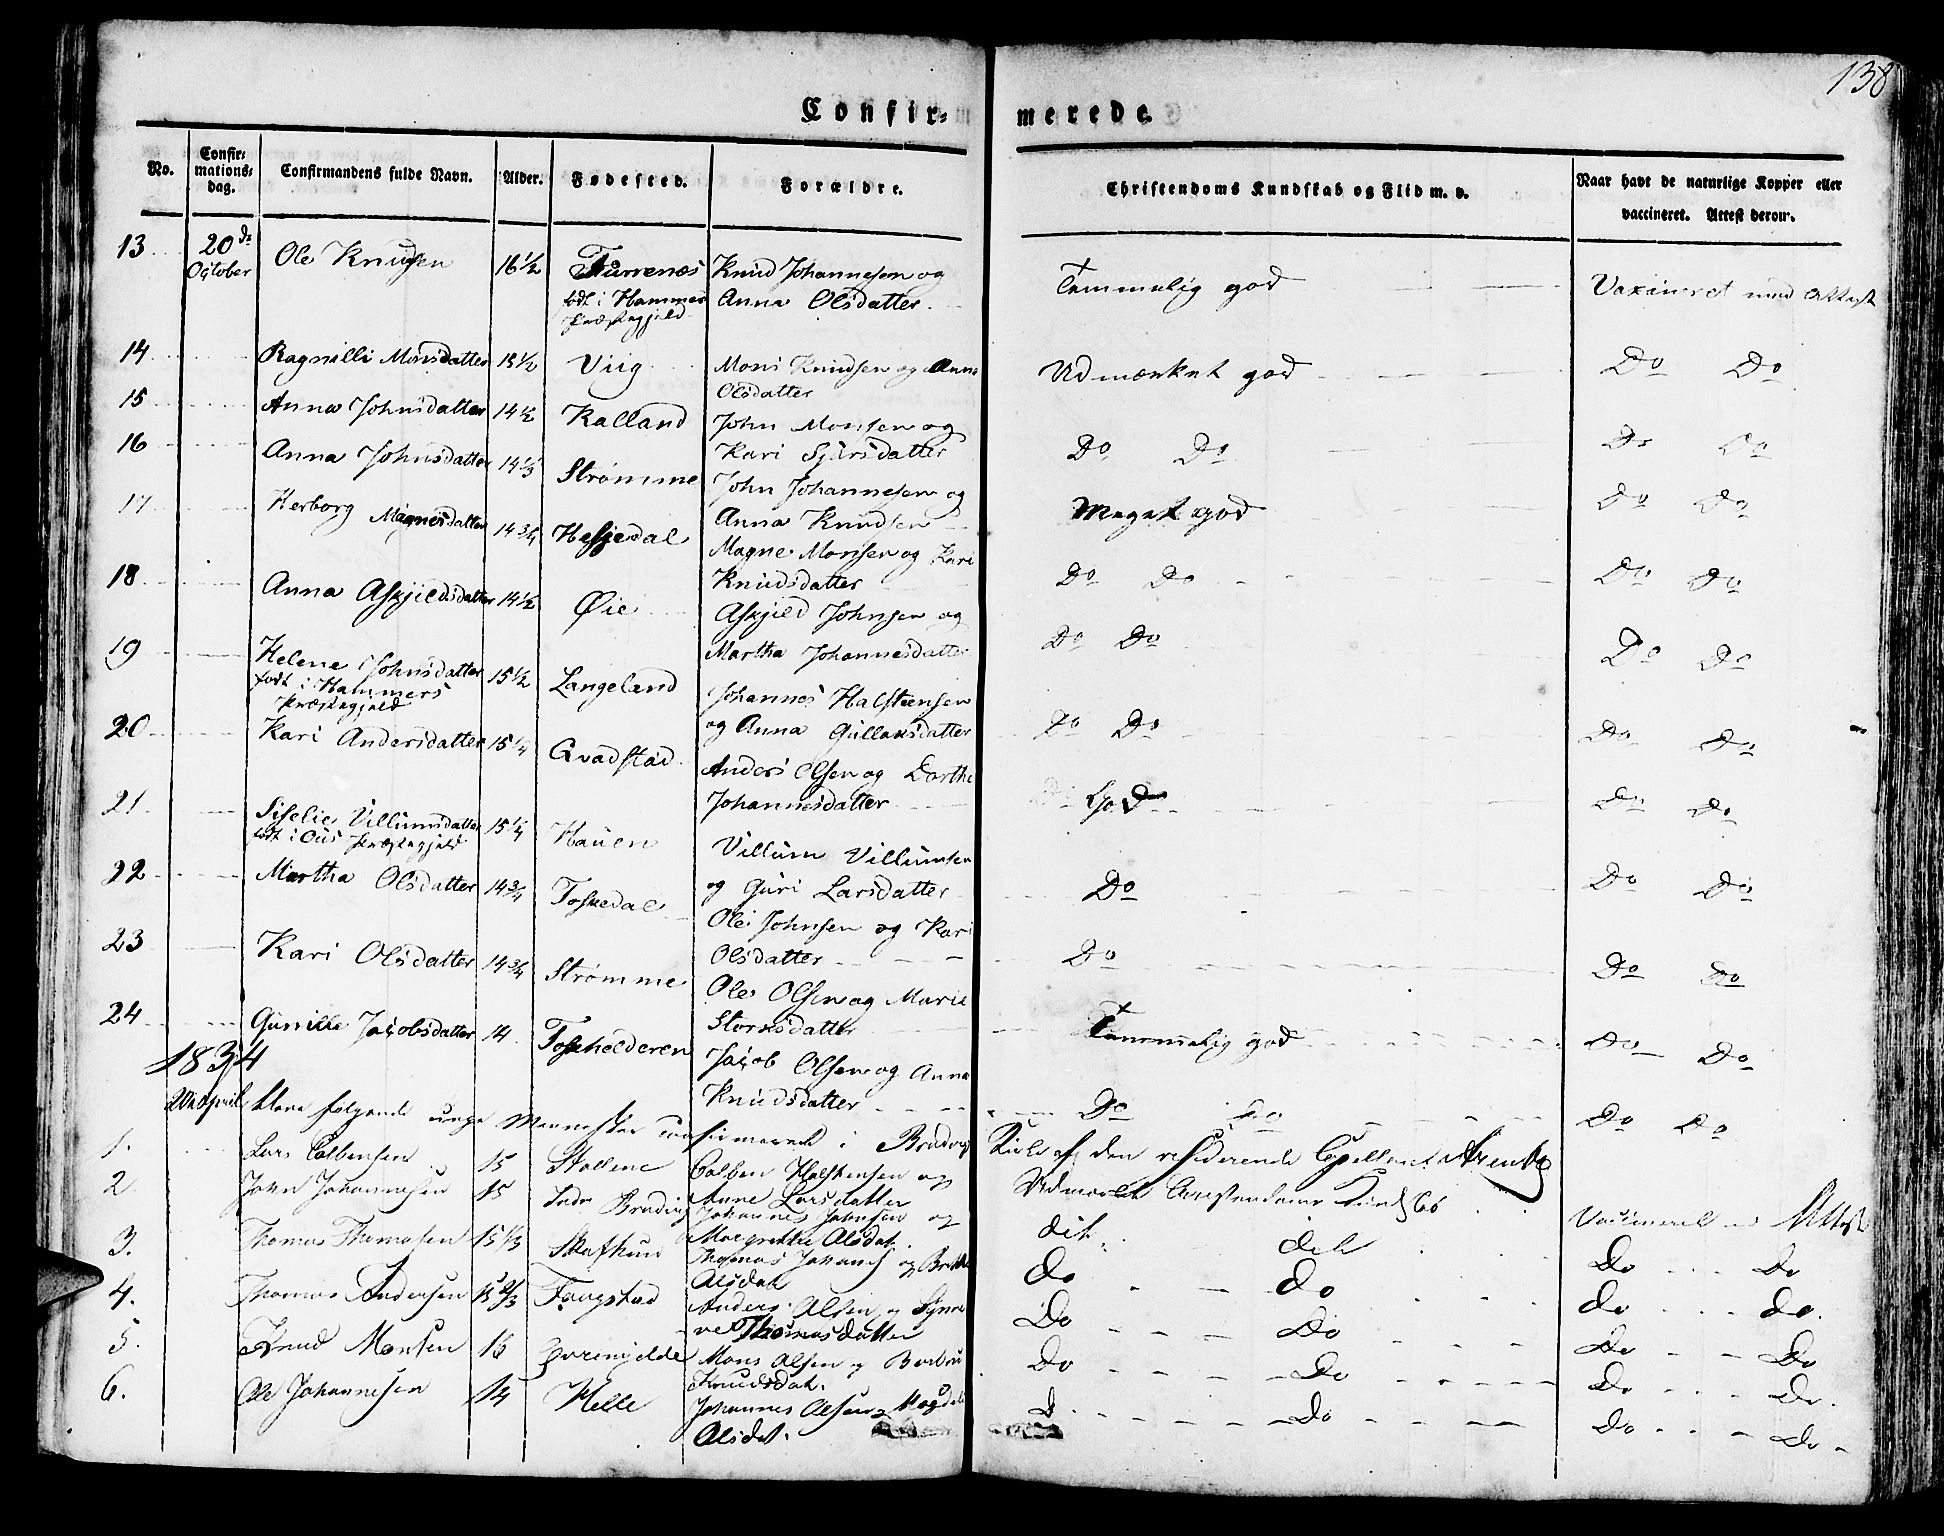 138
Confir= merede.
No. Confir= mations= dag. Confirmandens fulde Navn. Alder. Fødested. Forældre. Christendoms Kundskab og Flid m. v. Naar havt de naturlige Kopper eller vaccineret. Attest derom.
13 20de October Ole Knudsen 16 1/2 født i Hammers Præstegjeld Knud Johannesen og Anna Olsdatter Temmelig god Vaxineret med Attest
14 Ragnilli Monsdatter 15 1/2 Viig Mons Knudsen og Anna Olsdatter Udmærket god Do Do
15 Anna Johnsdatter 14 1/2 Kalland John Monsen og Kari Sjursdatter Do Do Do Do
16 Anna Johnsdatter 14 1/3 Strømme John Johannesen og Anna Knudsen Meget god Do Do
17 Herborg Magnesdatter 14 3/4 Hesjedal Magne Monsen og Kari Knudsdatter Do Do Do Do
18 Anna Askjeldsdatter 14 1/2 Øie Askjeld Johnsen og Martha Johannesdatter Do Do Do Do
19 Helene Johnsdatter født i Hammers Præstegjeld 15 1/2 Langeland Johannes Halsteensen og Anna Gullaksdatter Do Do Do Do
20 Kari Andersdatter 15 1/4 Qvadstad Anders Olsen og Dorthe Johannesdatter God Do Do
21 Siselie Villumsdatter født i Ous Præstegjeld 15 1/4 Hauen Villum Villumsen og Guri Larsdatter Do Do Do
22 Martha Olsdatter 14 3/4 Toskedal Ole Johnsen og Kari Olsdatter Do Do Do
23 Kari Olsdatter 14 3/4 Strømme Ole Olsen og Marie Storksdatter Temmelig god Do Do
24 Gunille Jacobsdatter 14 Jacob Olsen og Anna Knudsdatter Do Do Do Do
1834
20de April bleve følgende unge Mennesker confirmerede i Bruvig Kirke af den residerende Capellan
1. Lars Colbensen 15 Stallene Colben Halstensen og Anne Larsdatter Udmærket Christendoms Kundskab Vaccineret Attest
2 John Johannesen 15 Indre Bruvig Johannes Johnsen og Margrethe Olsdat. dit. dit Do Do
3. Thomas Thomasen 15 1/3 Skafthun Thomas Johans og Olsdat Do do do do.
4. Thomas Andersen 15 2/3 Fangstad Anders Olsen og Synneve Thomasdatter Do Do Do Do
5. Knud Monsen 16 Mons Olsen og Barbru Knudsdat. Do Do Do Do.
6. Ole Johannesen 14 Helle Johannes Olsen Magdeli Olsdat. D. Do Do Do